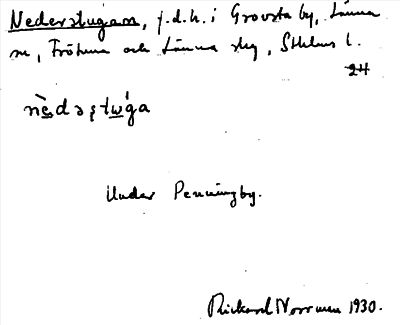 Nederstugan, f.d.h. i Grovsta by, Länna
sn, Frötuna och Länna skg, Sthlms l.
24
nèdəstẃga
Under Penningby.
Rickard Norrman 1930.